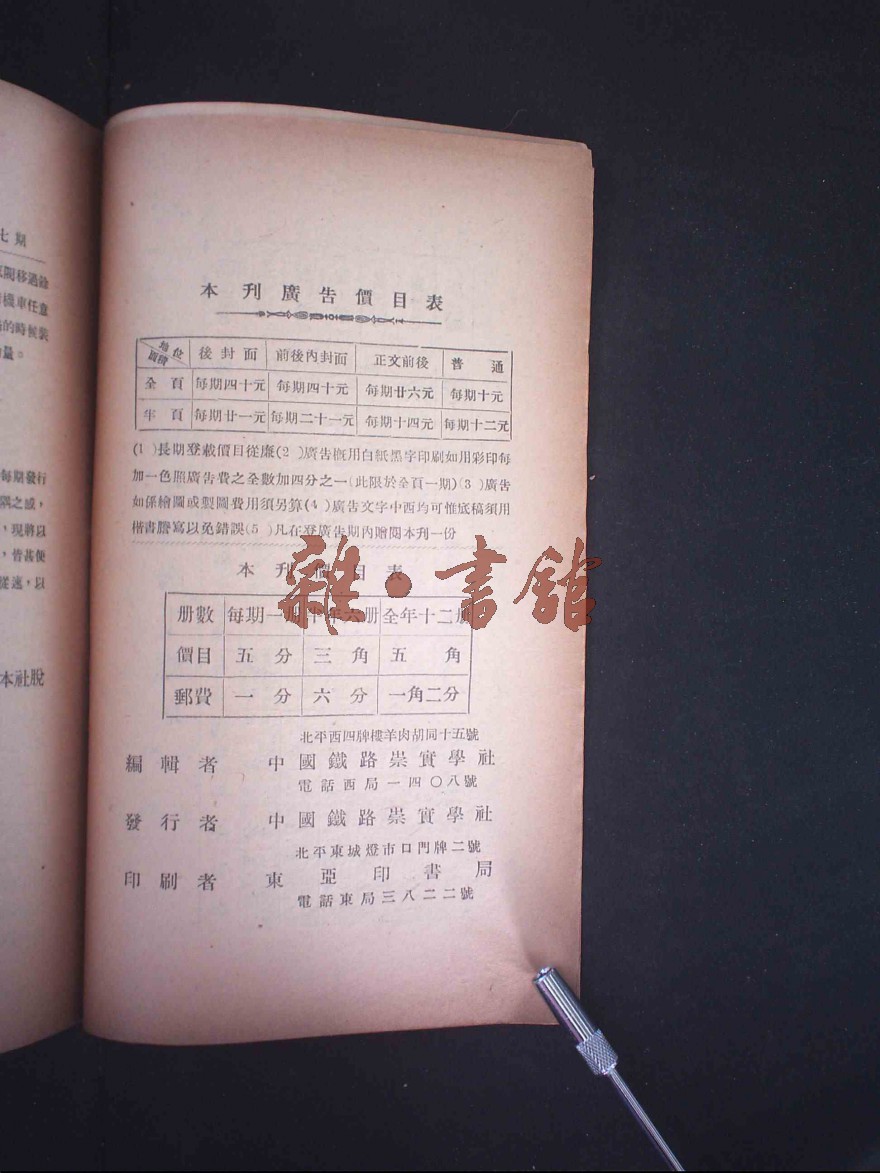 七期
機車任意
的時候裝
量。
每期發行
隅之感,
,現將以
,皆甚便
從速,以
本社脫
本刊廣告價目表
地位 面積 後封面 前後內封面 正文前後 普通
全頁 每期四十元 每期四十元 每期廿六元 每期十元
半頁 每期廿一元 每期二十一元 每期十四元 每期十二元
(1)長期登載價目從廉(2)廣告概用白紙黑字印刷如用彩印每
加一色照廣告費之全數加四分之一(此限於全頁一期)(3)廣告
如係繪圖或製圖費用須另算(4)廣告文字中西均可惟底稿須用
楷書謄寫以免錯誤(5)凡在登廣告期內贈閱本刊一份
本刊價目表
雜·書館
册數 每期一册 半年六册 全年十二册
價目 五分 三角 五角
郵費 一分 六分 一角二分
北平西四牌樓羊肉胡同十五號
編輯者 中國鐵路崇實學社
電話西局一四〇八號
發行者 中國鐵路崇實學社
北平東城燈市口門牌二號
印刷者 東亞印書局
電話東局三八二二號